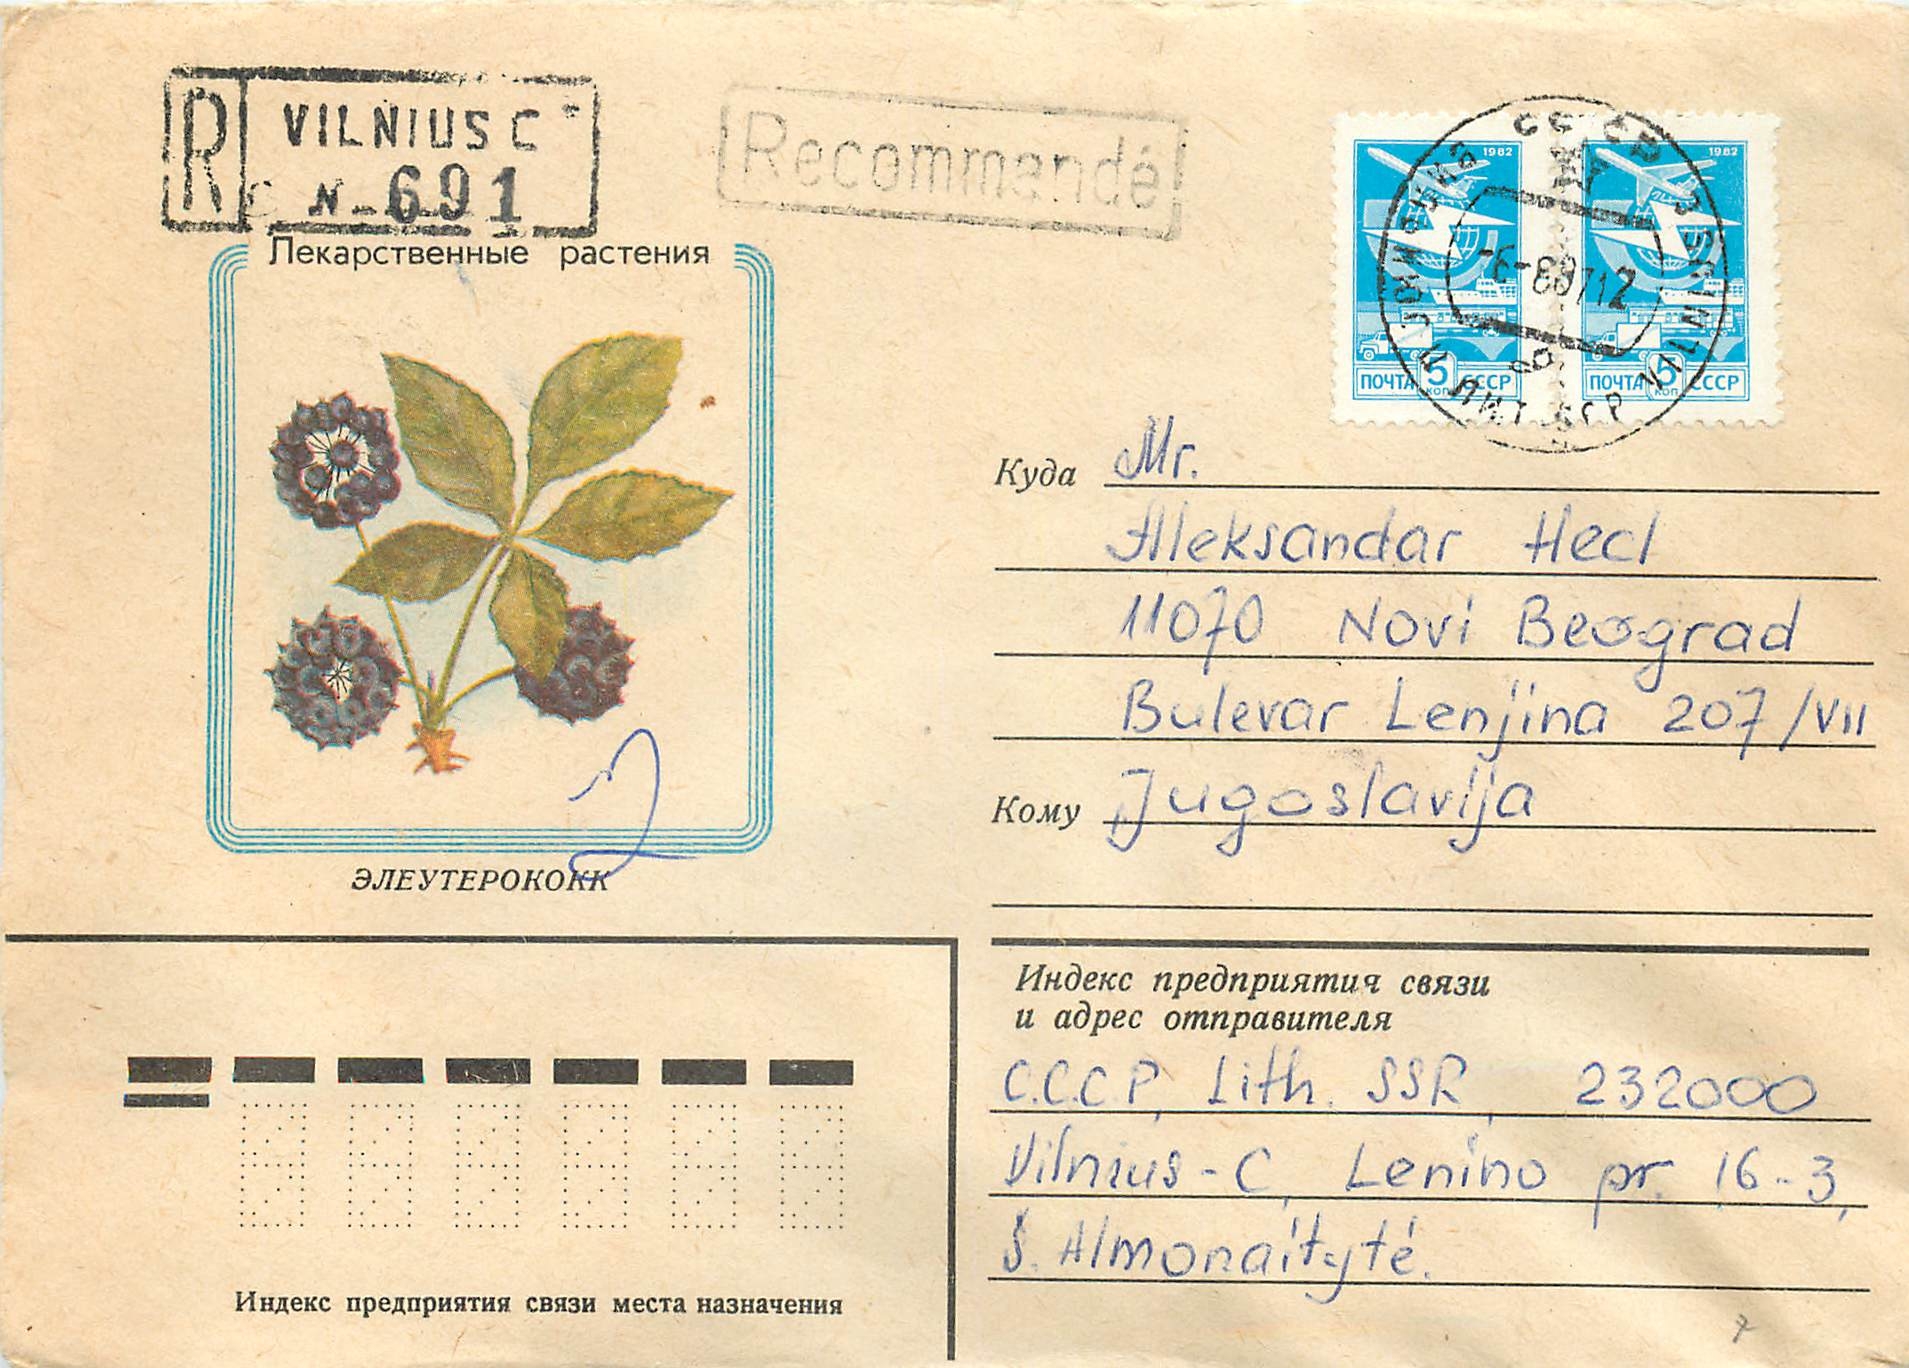 R VILNIUS C
N 691
Recommandé
Лекарственные растения
ЭЛЕУТЕРОКОКК
1982
ПОЧТА 5 КОП СССР
1982
ПОЧТА 5 КОП СССР
СССР
VILNIUS
ЛИТ. ССР
Куда Mr.
Aleksandar Hecl
11070 Novi Beograd
Bulevar Lenjina 207/VII
Кому Jugoslavija
Индекс предприятия связи
и адрес отправителя
С.С.С.Р, Lith. SSR, 232000
Vilnius-C, Lenino pr. 16-3,
S. Almonaitytė.
Индекс предприятия связи места назначения